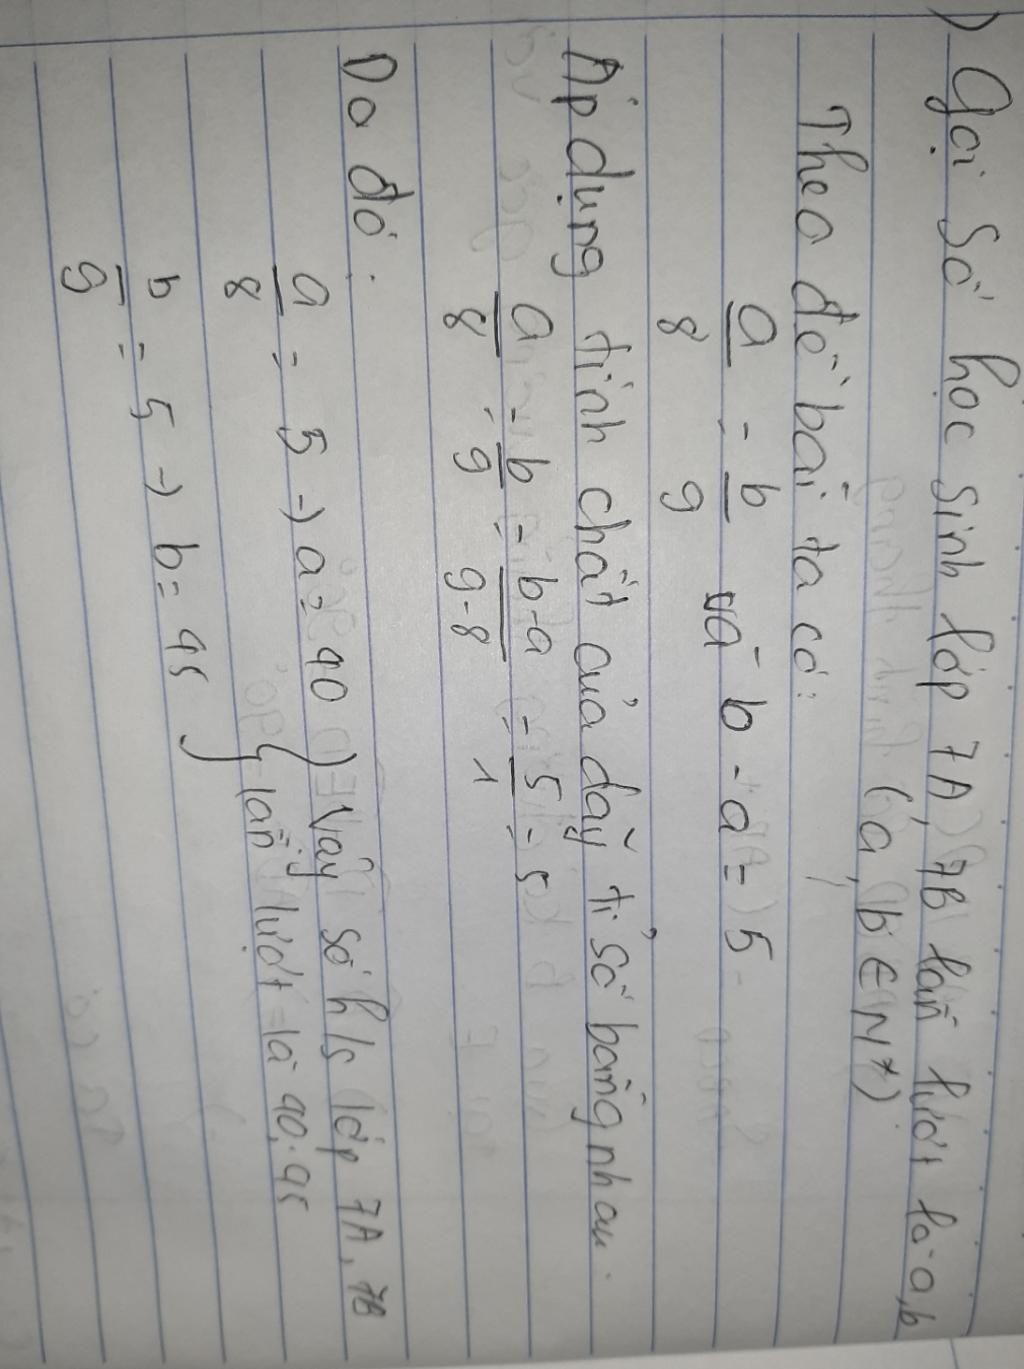 ) Gọi Số học sinh lớp 7A, 7B lần lượt là a,b
(a, b ∈ N*)
Theo đề bài ta có:
a/8 = b/9 và b - a = 5
Áp dụng tính chất của dãy tỉ số bằng nhau.
a/8 = b/9 = b-a/9-8 = 5/1 = 5
Do đó:
a/8 = 5 → a = 40 } Vậy số h/s lớp 7A, 7B
b/9 = 5 → b = 45 } lần lượt là 40. 45